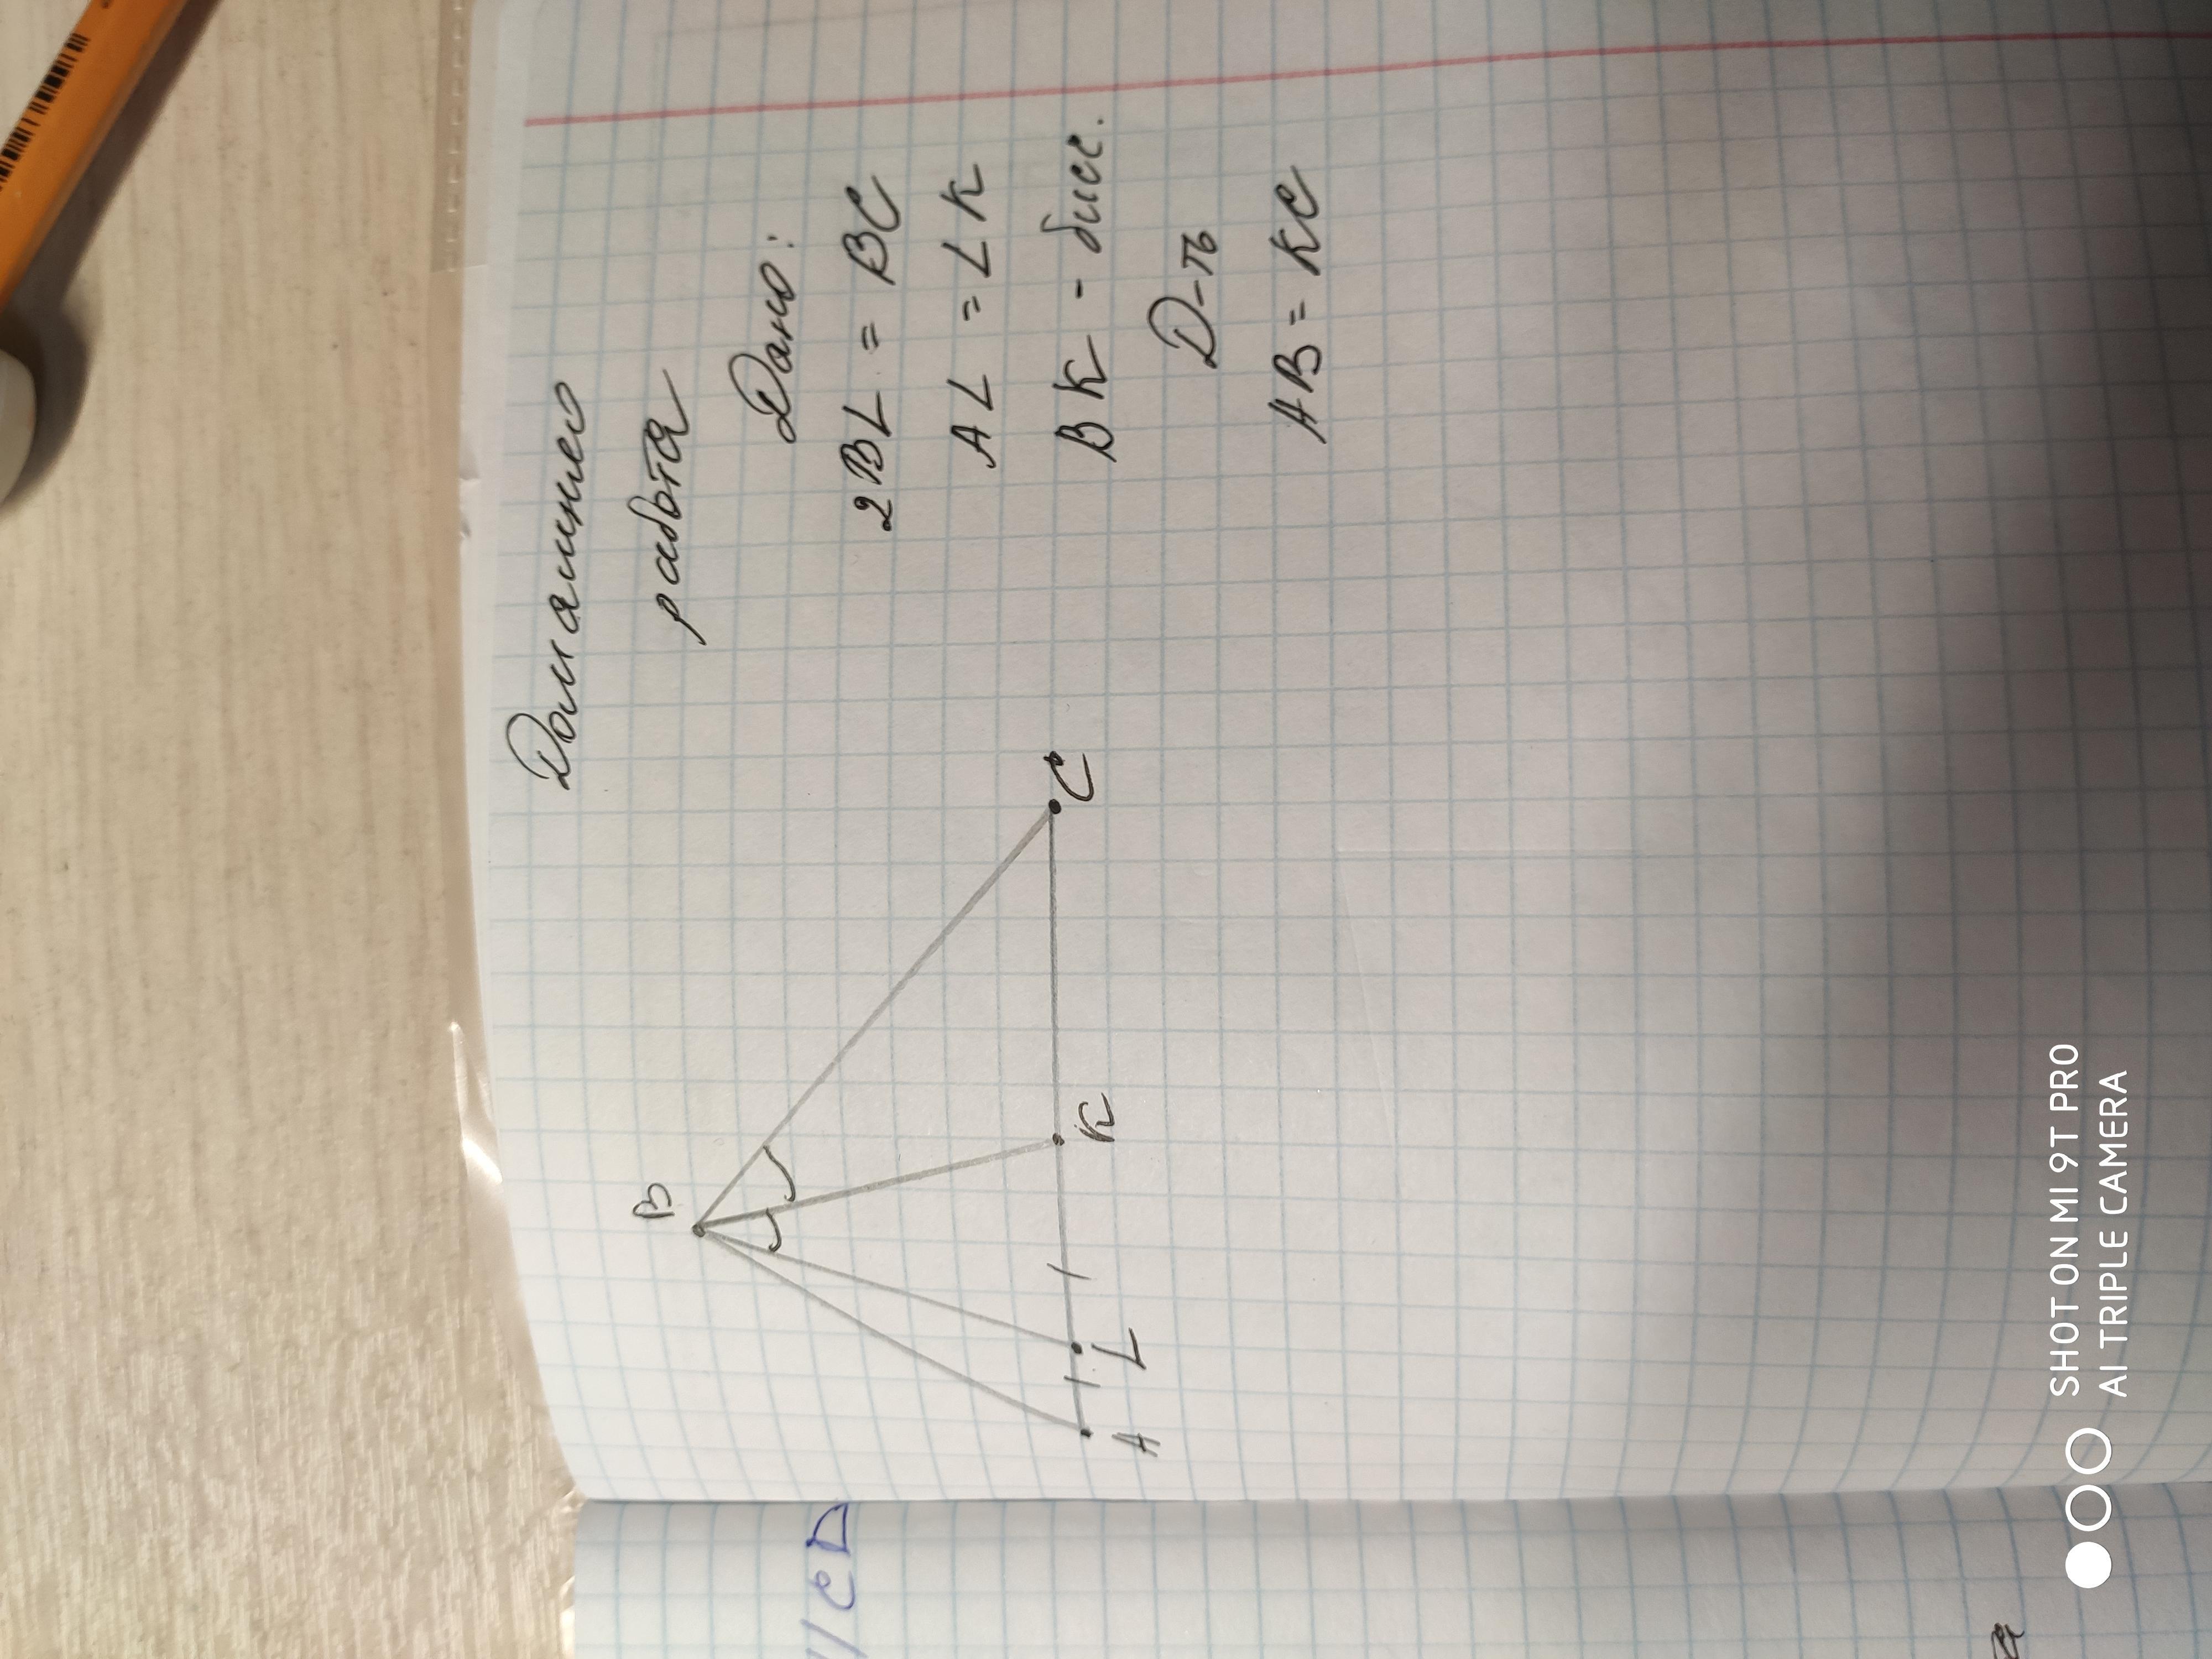 Домашнею
работа
Дано:
2BL = BC
AL = LK
BK - бисс.
Д-ть
AB = KC
B
A
L
K
C
SHOT ON MI 9T PRO
AI TRIPLE CAMERA